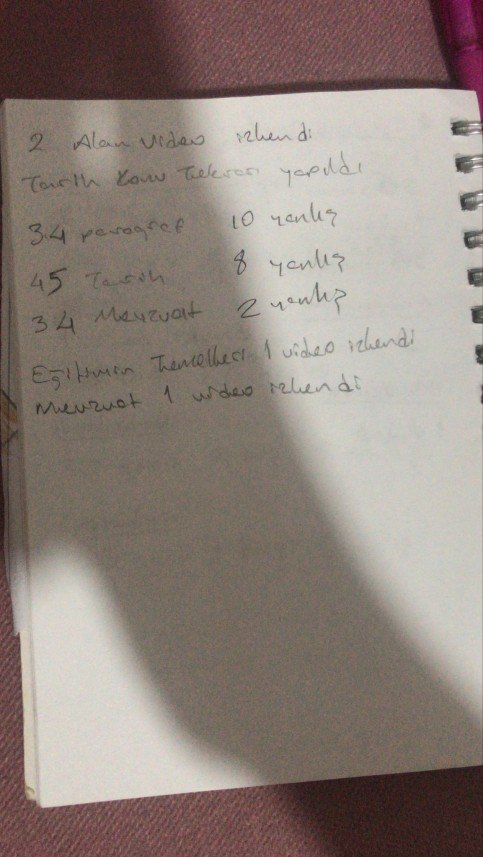 2 Alan video izlendi
Tarih konu Tekrarı yapıldı
34 paragraf 10 yanlış
45 Tarih 8 yanlış
34 Mevzuat 2 yanlış
Eğitimin Temelleri 1 video izlendi
Mevzuat 1 video izlendi